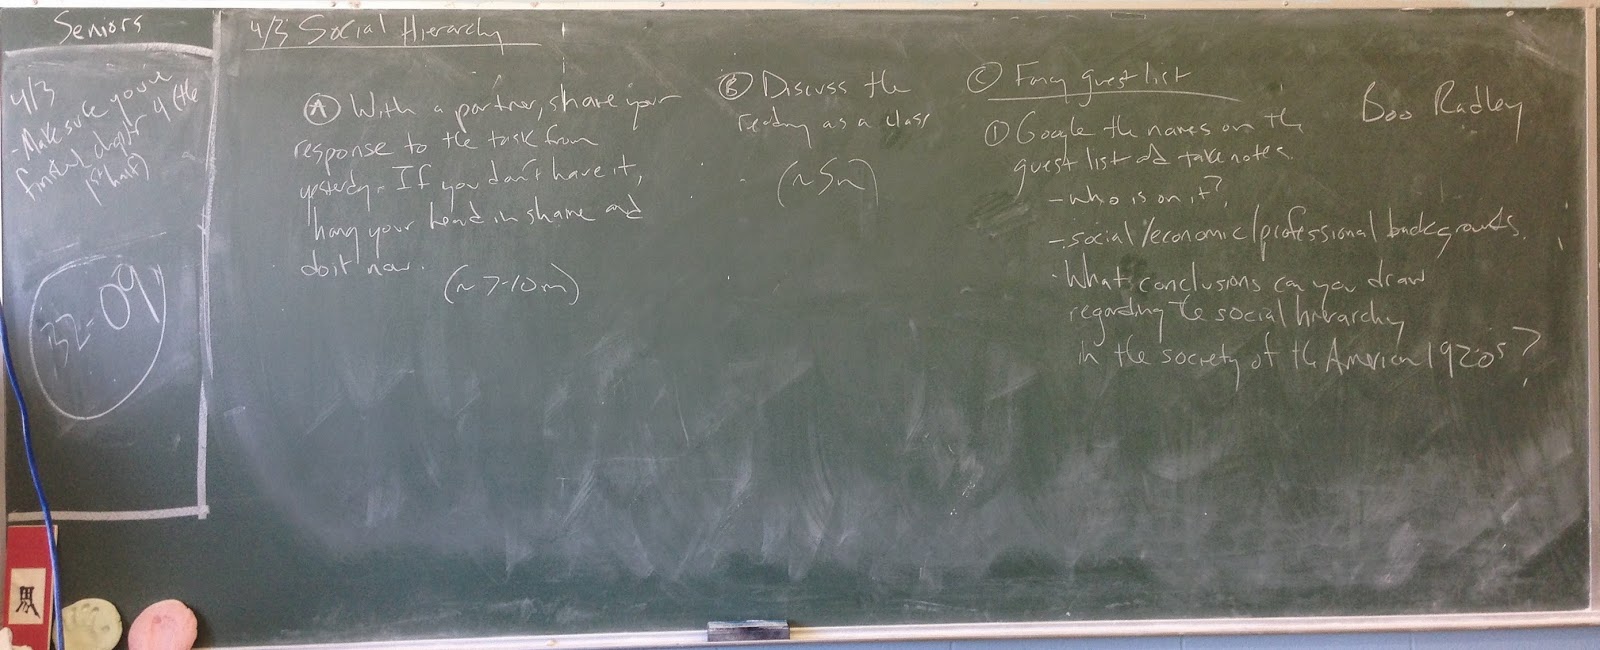 Seniors
4/3
- Make sure you've
finished chapter 4 (the
1st half)
32-09
4/3 Social Hierarchy
Ⓐ With a partner, share your
response to the task from
yesterday. If you don't have it,
hang your head in shame and
do it now.
(~7-10m)
Ⓑ Discuss the
reading as a class
(~5m)
Ⓒ Fancy guest list
① Google the names on the
guest list and take notes.
- who is on it?
- social/economic/professional backgrounds.
- What conclusions can you draw
regarding the social hierarchy
in the society of the American 1920s?
Boo Radley